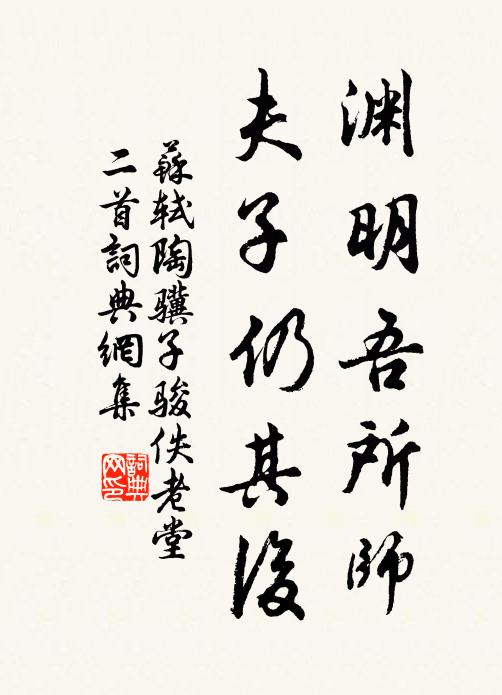 渊明吾所師
夫子仍其後
蘇軾陶驥子駿佚老堂
二首詞典網集
詞典網印